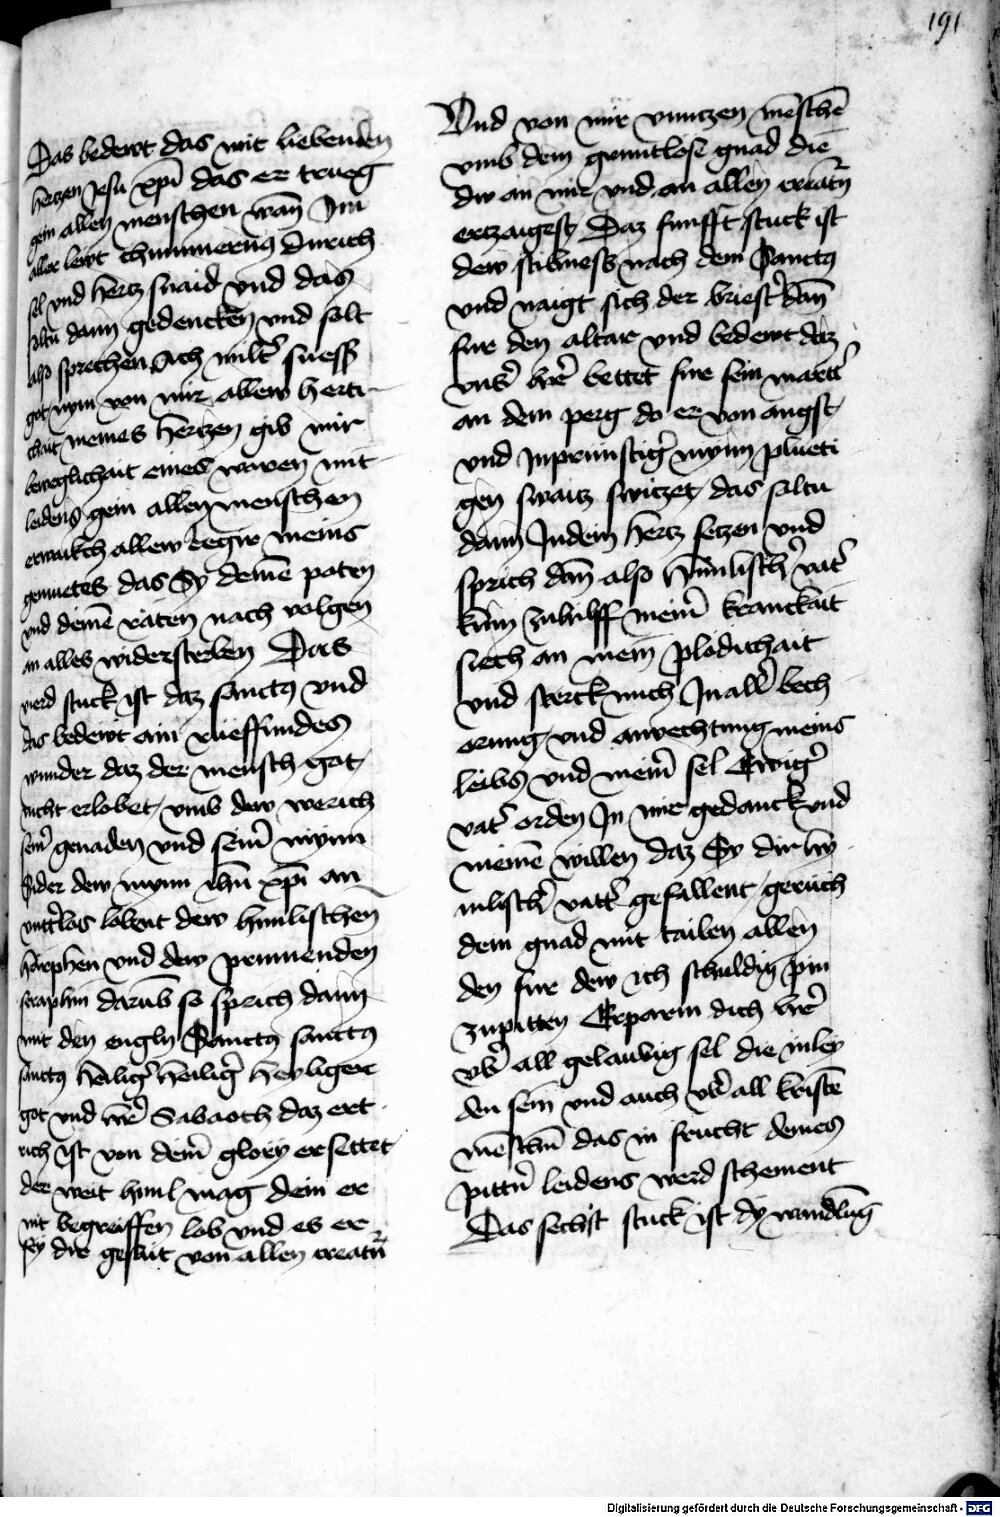 191
Das bedewt das mit liebenden
hertzen Jesu xpi das er trueg
gein allen menschen wan Im
aller lewt chummernus durich
sel vnd hertz snaid vnd das
soltu dann gedencken vnd solt
also sprechen Ach milt' suess
got nym von mir allew herti
chait meines hertzen gib mir
beweglichait eines waren mit
leidens gein allen menschen
erwaikch allew begir meins
gemuetes das Sy deinē poten
vnd deinē räten nach volgen
an alles widerstreben Das
vierd stuck ist daz sanctus vnd
das bedewt ain rüeffundes
wunder daz der mensch got
nicht erlobet vmb dew werich
sein' genaden vnd sein' mynn
Sider dew mynn ihū xpi an
vnterlos lobent dew himlischen
vnd dew prinnenden
seraphin darūb so sprich dann
mit den engln Sanctus sanctus
sanctus heilig' heilig' heyliger
got vnd h're Sabaoth daz ert
rich ist von dein' glory ersettet
der weit himl mag dein er
nit begreiffen lob vnd eb er
sey dir geseit von allen creatur
Vnd von mir vnnutzen mēschē
vmb dein gruntlose gnad die
dw an mir vnd an allen creatūr
ertzaigest Daz funfft stuck ist
dew stilness nach dem Sanctus
vnd naigt sich der briest' dan
fur den altar vnd bedewt daz
vns' h're bettet fur sein mart'
an dem perg do er von angst
vnd Inprünstig' mynn plueti
gen swaitz switzet das soltu
dann In dein hertz setzen vnd
sprich dan also himlisch' vat'
kum zuhilff mein' kranckait
siech an mein plodichait
vnd sterck mich In all' bech
orung vnd anvechtung meins
leibs vnd mein' sel Ewig'
vat' orden In mir gedanck vnd
meinē willen daz Sy dir hy
mlisch' vatt' gefallent geruch
dein gnad mit tailen allen
den fur dew ich schuldig pin
zupitten Erparm dich h're
vb' all gelaubig sel die in ley
den sein vnd auch vb' all kristē
mēschn das in frucht deines
pittn leidens werd schement
Das sechst stuck ist dy wandlūg
Digitalisierung gefördert durch die Deutsche Forschungsgemeinschaft - DFG